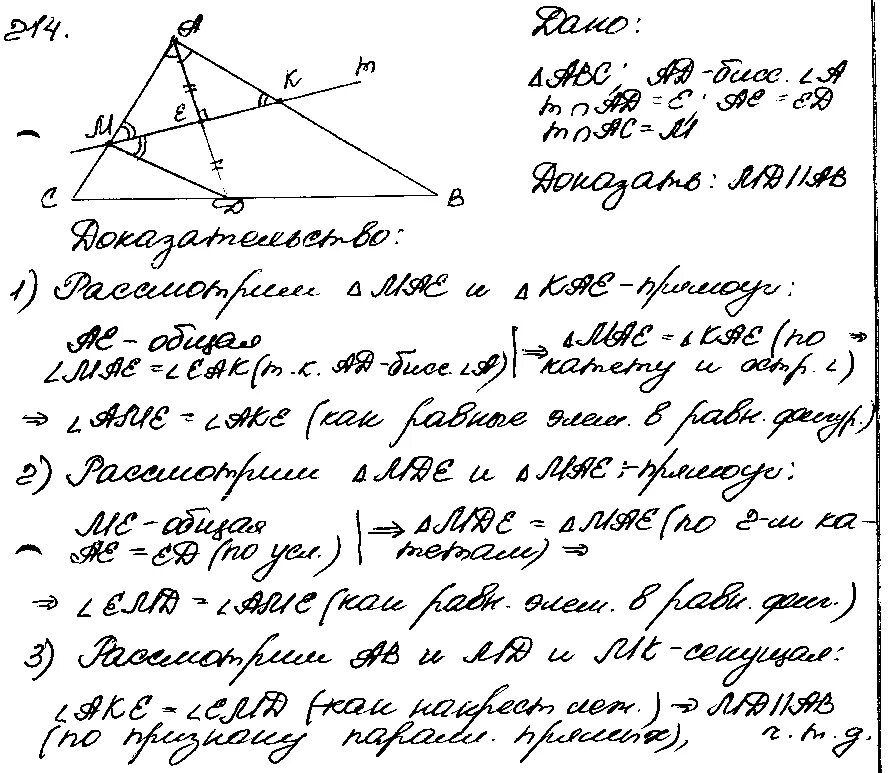 214.
A
K
m
E
M
C
D
B
Дано:
△ABC; AD-бисс. ∠A
m∩AD = E; AE = ED
m∩AC = M
Доказать: MD||AB
Доказательство:
1) Рассмотрим △MAE и △KAE-прямоуг:
AE - общая
∠MAE = ∠EAK (т.к. AD-бисс. ∠A) | ⇒ △MAE = △KAE (по ⇒
катету и остр. ∠)
⇒ ∠AME = ∠AKE (как равные элем. в равн. фигур.)
2) Рассмотрим △MDE и △MAE-прямоуг:
ME - общая
AE = ED (по усл.) | ⇒ △MDE = △MAE (по 2-м ка-
тетам) ⇒
⇒ ∠EMD = ∠AME (как равн. элем. в равн. фиг.)
3) Рассмотрим AB и MD и MK-секущая:
∠AKE = ∠EMD (как накрест леж.) ⇒ MD||AB
(по признаку парал. прямых), ч.т.д.